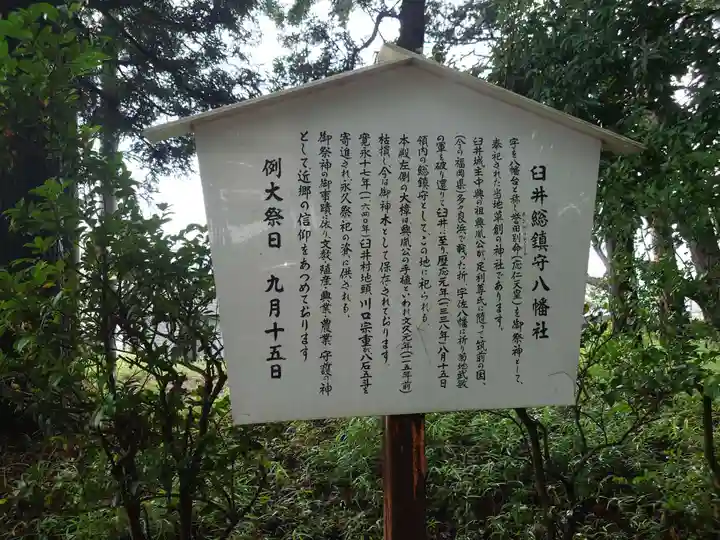 臼井総鎮守八幡社
字を八幡台と称し誉田別命(応仁天皇)を御祭神として、
奉祀された当地草創の神社であります。
臼井城主中興の祖興胤公が、足利尊氏に随って筑前の国、
(今の福岡県)多々良浜で戦った折、宇佐八幡に祈り菊地武敏
の軍を破り還りて臼井に至り暦応元年(一三三八年)八月十五日
領内の総鎮守として、この地に祀られる。
本殿左側の大樟は興胤公の手植といわれ文久元年(一二五年前)
枯損し今は御神木として保存されております。
寛永十七年(一六四〇年)臼井村地頭、川口宗重が八石五斗を
寄進され永久祭祀の資に供される。
御祭神の御事蹟に依り文教、殖産、興業、農業、守護の神
として近郷の信仰をあつめております。
例大祭日 九月十五日